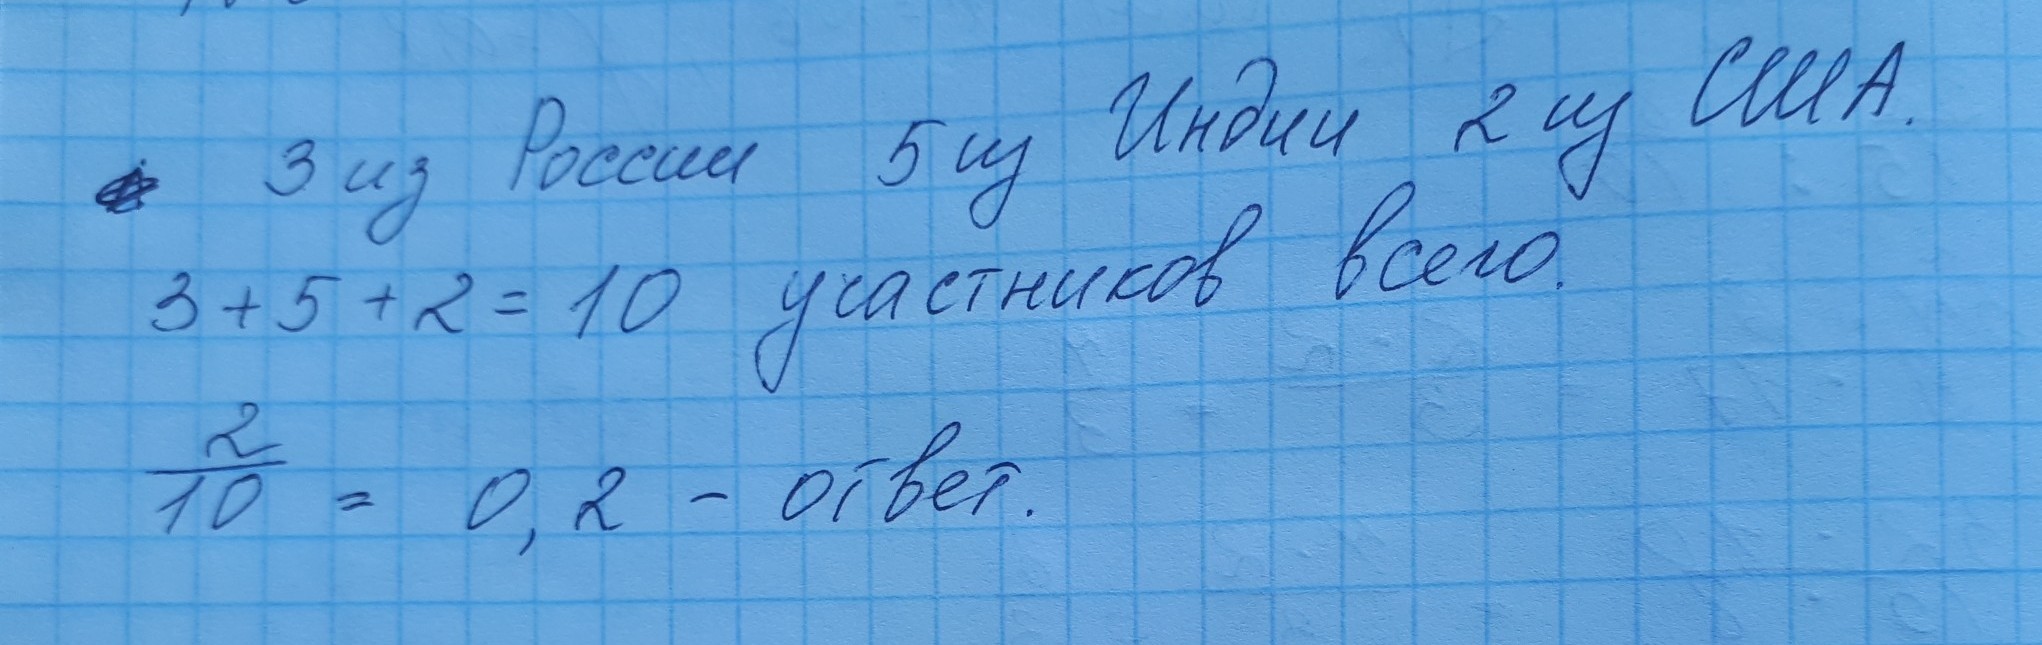 3 из России 5 из Индии 2 из США.
3 + 5 + 2 = 10 участников всего.
2/10 = 0,2 - ответ.